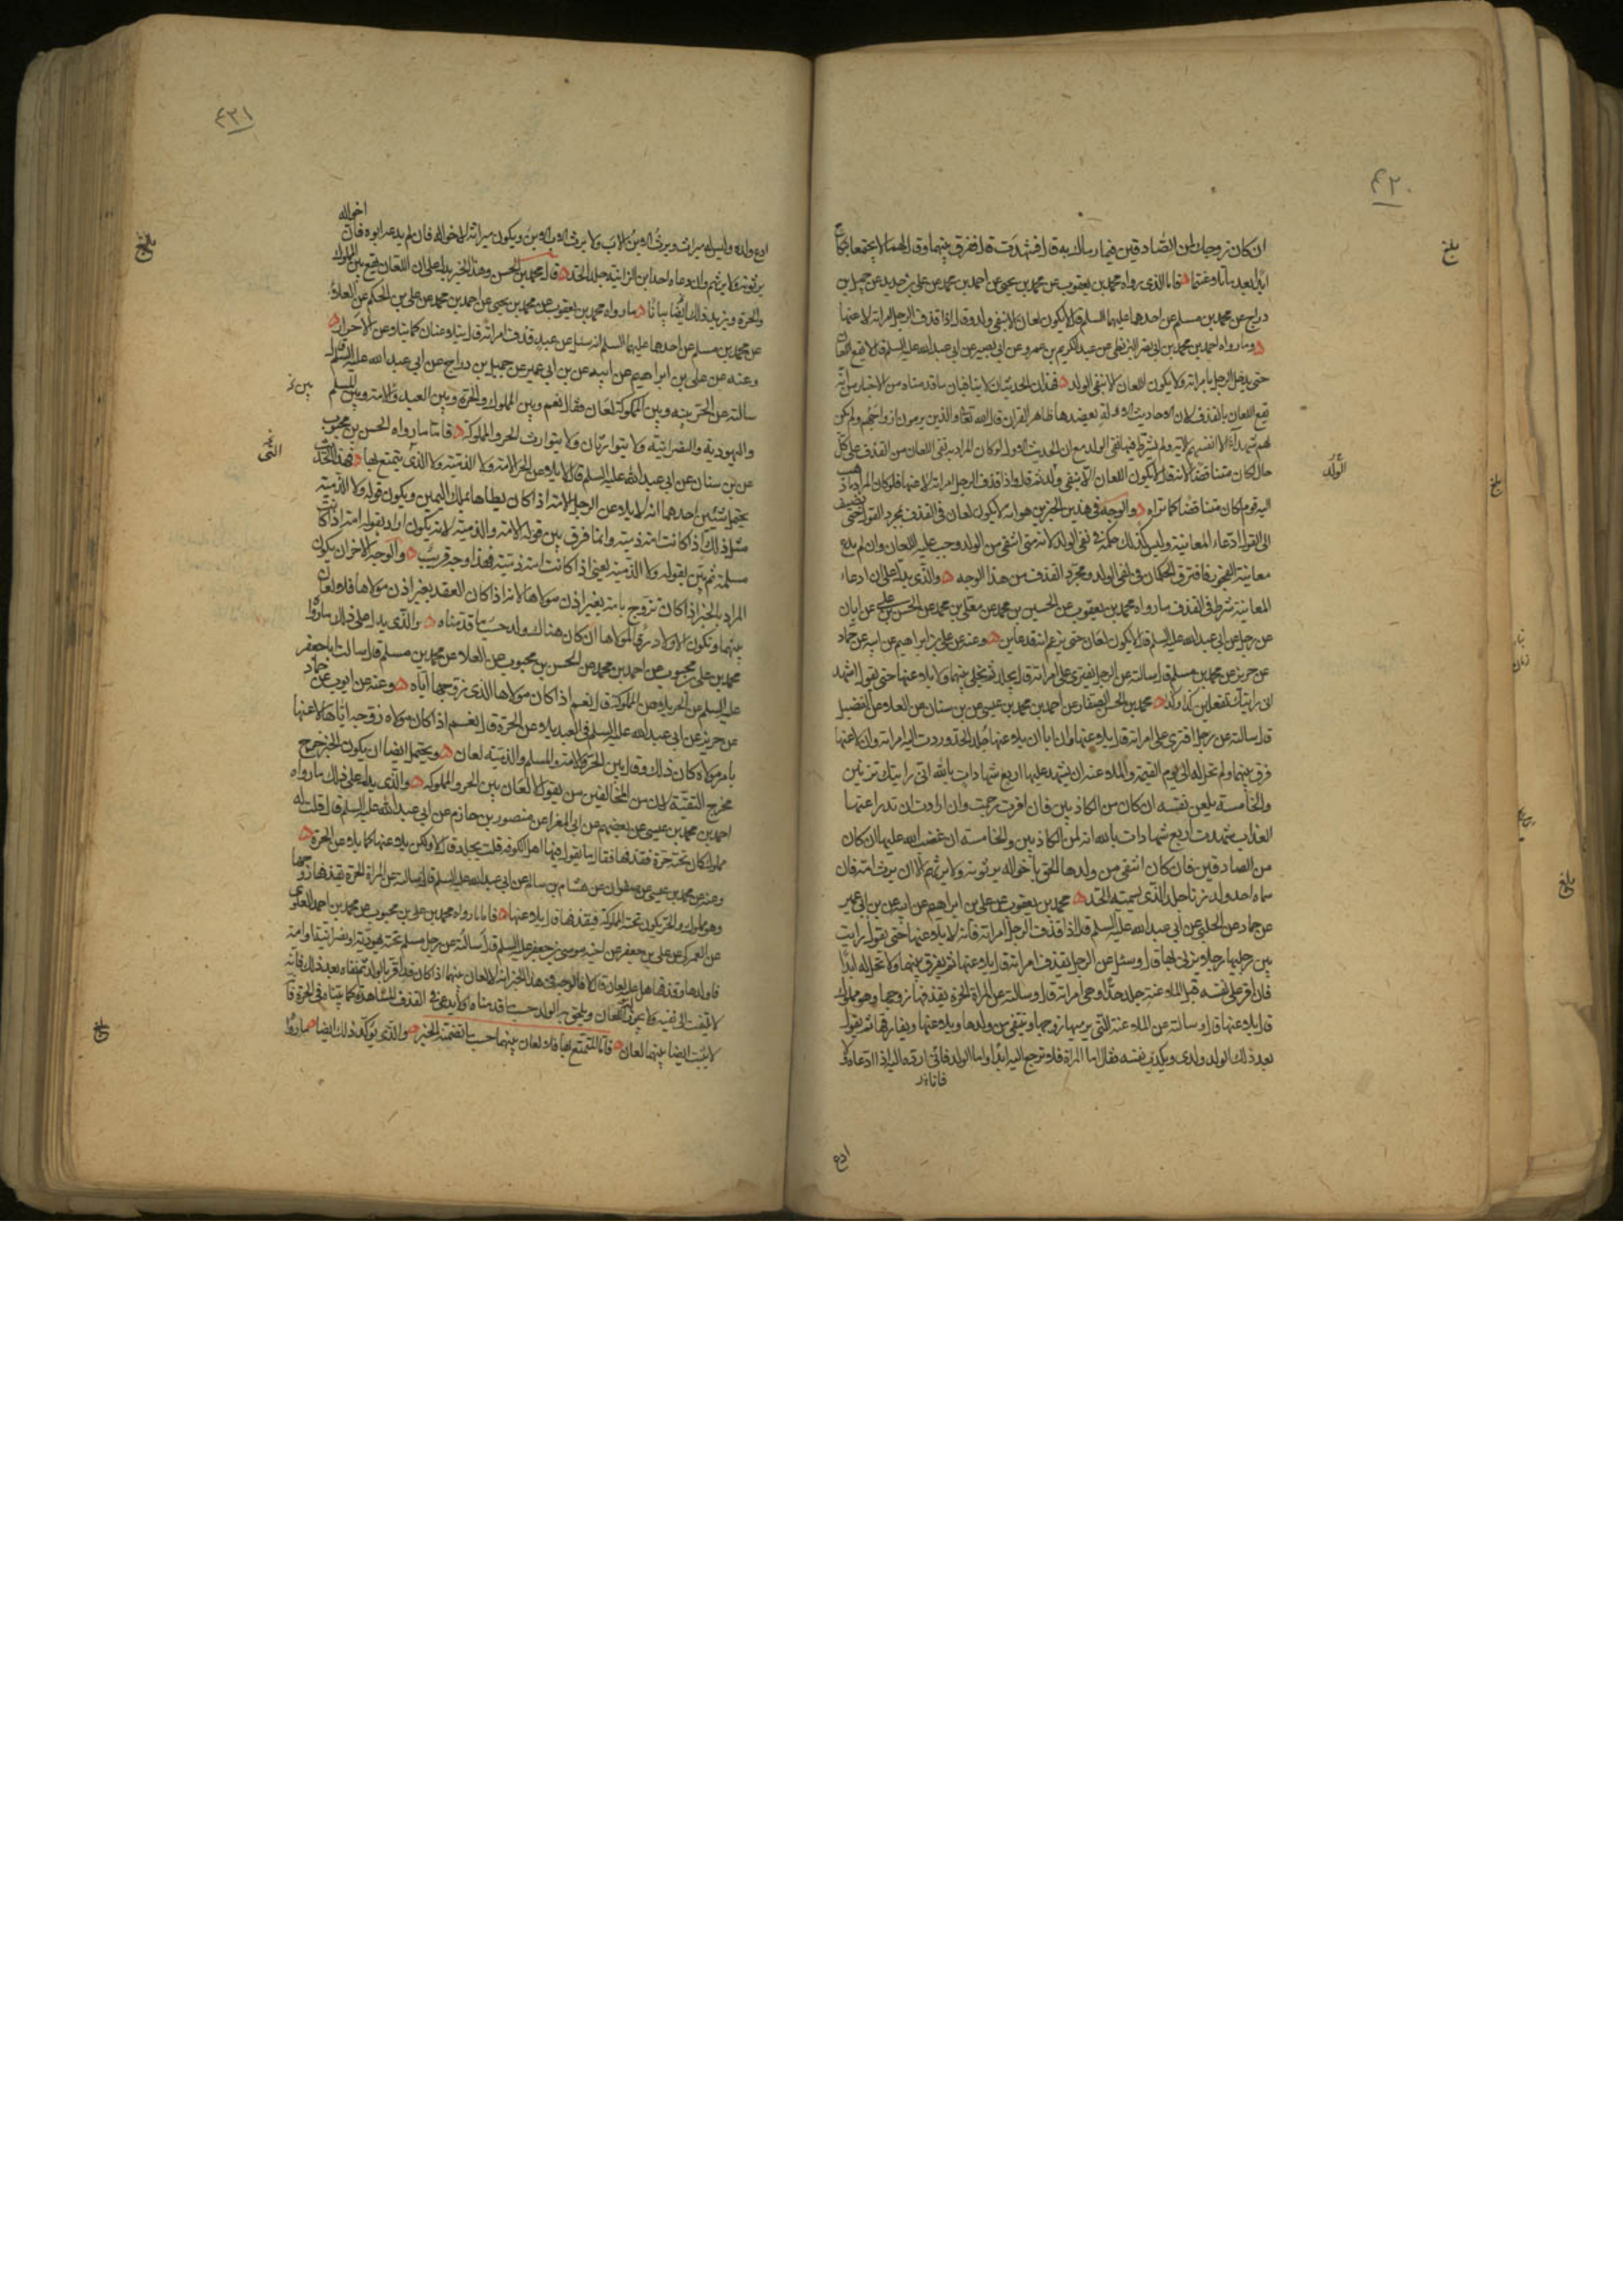 ۴۲۰
ان كان زوجك لمن الصادقين فيما رماك به قال فشهدت قال ففرق بينهما وقال لهما لا تجتمعا بنكاح
ابدا بعد ما تلاعنتما فاما الذى رواه محمد بن يعقوب عن محمد بن يحيى عن احمد بن محمد عن على بن حديد عن جميل بن
دراج عن محمد بن مسلم عن احدهما عليهما السلم قال لا يكون لعان الا بنفى ولد وقال اذا قذف الرجل امراته لاعنها
وما رواه احمد بن محمد بن ابى نصر البزنطى عن عبد الكريم بن عمرو عن ابى بصير عن ابى عبد الله عليه السلم قال لا يقع اللعان
حتى يدخل الرجل بامراته ولا يكون اللعان الا بنفى الولد فهذان الحديثان لا ينافيان ما قدمناه من الاخبار من انه
يقع اللعان بالقذف لان الاحاديث الاولة يعضدها ظاهر القران قال الله تعالى والذين يرمون ازواجهم ولم يكن
لهم شهداء الا انفسهم الاية ولم يشترط فيها نفى الولد مع ان الحديث الاول لو كان المراد به نفى اللعان من القذف على كل
حال لكان متناقضا لانه قال لا يكون اللعان الا بنفى ولد ثم قال واذا قذف الرجل امراته لاعنها فلو كان المراد ما ذهب
اليه قوم لكان متناقضا كما تراه والوجه فى هذين الخبرين هو انه لا يكون لعان فى القذف بمجرد القول حتى يضيف
الى القول ادعاء المعاينة وليس كذلك حكمه فى نفى الولد لانه متى انتفى من الولد وجب عليه اللعان وان لم يدع
معاينة الفجور فافترق الحكمان فى نفى الولد ومجرد القذف من هذا الوجه والذى يدل على ان ادعاء
المعاينة شرط فى القذف ما رواه محمد بن يعقوب عن الحسين بن محمد عن معلى بن محمد عن الحسن بن على عن ابان
عن رجل عن ابى عبد الله عليه السلم قال لا يكون لعان حتى يزعم انه قد عاين وعنه عن على بن ابراهيم عن ابيه عن حماد
عن حريز عن محمد بن مسلم قال سالته عن الرجل يفترى على امراته قال يجلد ثم يخلى بينهما ولا يلاعنها حتى يقول اشهد
انى رايتك تفعلين كذا وكذا محمد بن الحسن الصفار عن احمد بن محمد بن عيسى عن بن سنان عن العلا عن الفضيل
قال سالته عن رجل افترى على امراته قال يلاعنها وان ابا ان يلاعنها جلد الحد وردت اليه امراته وان لاعنها
فرق بينهما ولم تحل له الى يوم القيمة والملاعنة ان يشهد عليها اربع شهادات بالله انى رايتك تزنين
والخامسة يلعن نفسه ان كان من الكاذبين فان اقرت رجمت وان ارادت ان تدرا عنها
العذاب شهدت اربع شهادات بالله انه لمن الكاذبين والخامسة ان غضب الله عليها ان كان
من الصادقين فان كان انتفى من ولدها الحق باخواله يرثونه ولا يرثهم الا ان يرث امه فان
سماه احد ولد زنا جلد الذى يسميه الحد محمد بن يعقوب عن على بن ابراهيم عن ابيه عن بن ابى عمير
عن حماد عن الحلبى عن ابى عبد الله عليه السلم قال اذا قذف الرجل امراته فانه لا يلاعنها حتى يقول رايت
بين رجليها رجلا يزنى بها قال وسئل عن الرجل يقذف امراته قال يلاعنها ثم يفرق بينهما ولا تحل له ابدا
فان اقر على نفسه قبل الملاعنة جلد حدا وهى امراته قال وسالته عن المراة الحرة يقذفها زوجها وهو مملوك
قال يلاعنها قال وسالته عن الملاعنة التى يرميها زوجها وينتفى من ولدها ويلاعنها ويفارقها ثم يقول
بعد ذلك الولد ولدى ويكذب نفسه فقال اما المراة فلا ترجع اليه ابدا واما الولد فانى ارده اليه اذا ادعاه ولا
ادع
بلغ
الولد
۴۲۱
ادع ولده وليس له ميراث ويرث الابن الاب ولا يرث الاب الابن ويكون ميراثه لاخواله فان لم يدعه ابوه فان اخواله
يرثونه ولا يرثهم وان دعاه احد ابن الزانية جلد الحد قال محمد بن الحسن وهذا الخبر يدل على ان اللعان يقع بين المملوك
والحرة ويزيد ذلك ايضا بيانا ما رواه محمد بن يعقوب عن محمد بن يحيى عن احمد بن محمد عن على بن الحكم عن العلا
عن محمد بن مسلم عن احدهما عليهما السلم انه سئل عن عبد قذف امراته قال يتلاعنان كما يتلاعن الاحرار
وعنه عن على بن ابراهيم عن ابيه عن بن ابى عمير عن جميل بن دراج عن ابى عبد الله عليه السلم قال
سالته عن الحر بينه وبين المملوكة لعان فقال نعم وبين المملوك والحرة وبين العبد والامة وبين المسلم
واليهودية والنصرانية ولا يتوارثان ولا يتوارث الحر والمملوكة فاما ما رواه الحسن بن محبوب
عن بن سنان عن ابى عبد الله عليه السلم قال لا يلاعن الحر الامة ولا الذمية ولا الذى يتمتع بها فهذا الحديث
يحتمل شيئين احدهما انه لا يلاعن الرجل الامة اذا كان يطاها بملك اليمين ويكون قوله ولا الذمية
مثل ذلك اذا كانت امة ذمية وانما فرق بين قوله الامة والذمية لانه يكون اراد بقوله امة اذا كانت
مسلمة ثم بين بقوله ولا الذمية يعنى اذا كانت امة ذمية فهذا وجه قريب والوجه الاخر ان يكون
المراد بالخبر اذا كان تزوج بامة بغير اذن مولاها لانه اذا كان العقد بغير اذن مولاها فلا لعان
بينهما ويكون الاولاد رقا لمولاها ان كان هناك ولد حسب ما قدمناه والذى يدل على ذلك ما رواه
محمد بن على بن محبوب عن احمد بن محمد عن الحسن بن محبوب عن العلا عن محمد بن مسلم قال سالت ابا جعفر
عليه السلم عن الحر يلاعن المملوكة قال نعم اذا كان مولاها الذى زوجها اياه وعنه عن ايوب عن حماد
عن حريز عن ابى عبد الله عليه السلم فى العبد يلاعن الحرة قال نعم اذا كان مولاه زوجه اياها لاعنها
بامر مولاه كان ذلك وقال بين الحر والامة والمسلم والذمية لعان ويحتمل ايضا ان يكون الخبر خرج
مخرج التقية لان من المخالفين من يقول لا لعان بين الحر والمملوكة والذى يدل على ذلك ما رواه
احمد بن محمد بن عيسى عن بعضهم عن ابى المغرا عن منصور بن حازم عن ابى عبد الله عليه السلم قال قلت له
مملوك كان تحته حرة فقذفها فقال ما يقول فيها اهل الكوفة قلت يجلد قال لا ولكن يلاعنها كما يلاعن الحرة
وعنه عن محمد بن عيسى عن صفوان عن هشام بن سالم عن ابى عبد الله عليه السلم قال سالته عن المراة الحرة يقذفها زوجها
وهو مملوك والحر يكون تحته المملوكة فيقذفها قال يلاعنها فاما ما رواه محمد بن على بن محبوب عن محمد بن احمد العلوى
عن العمركى عن على بن جعفر عن اخيه موسى بن جعفر عليه السلم قال سالته عن رجل مسلم تحته يهودية او نصرانية او امة
فاولدها وقذفها هل عليه لعان قال لا فالوجه فى هذا الخبر انه لا لعان بينهما اذا كان قد اقر بالولد ثم نفاه بعد ذلك فانه
لا يلتفت الى نفيه ولا يجوز اللعان ويلحق به الولد حسب ما قدمناه ولا يدعى فى القذف المشاهدة كما بيناه فى الحرة
لا يثبت ايضا بينهما لعان فاما المتمتع بها فلا لعان بينهما حسب ما تضمنه الخبر والذى يؤكد ذلك ايضا ما رواه
بلغ